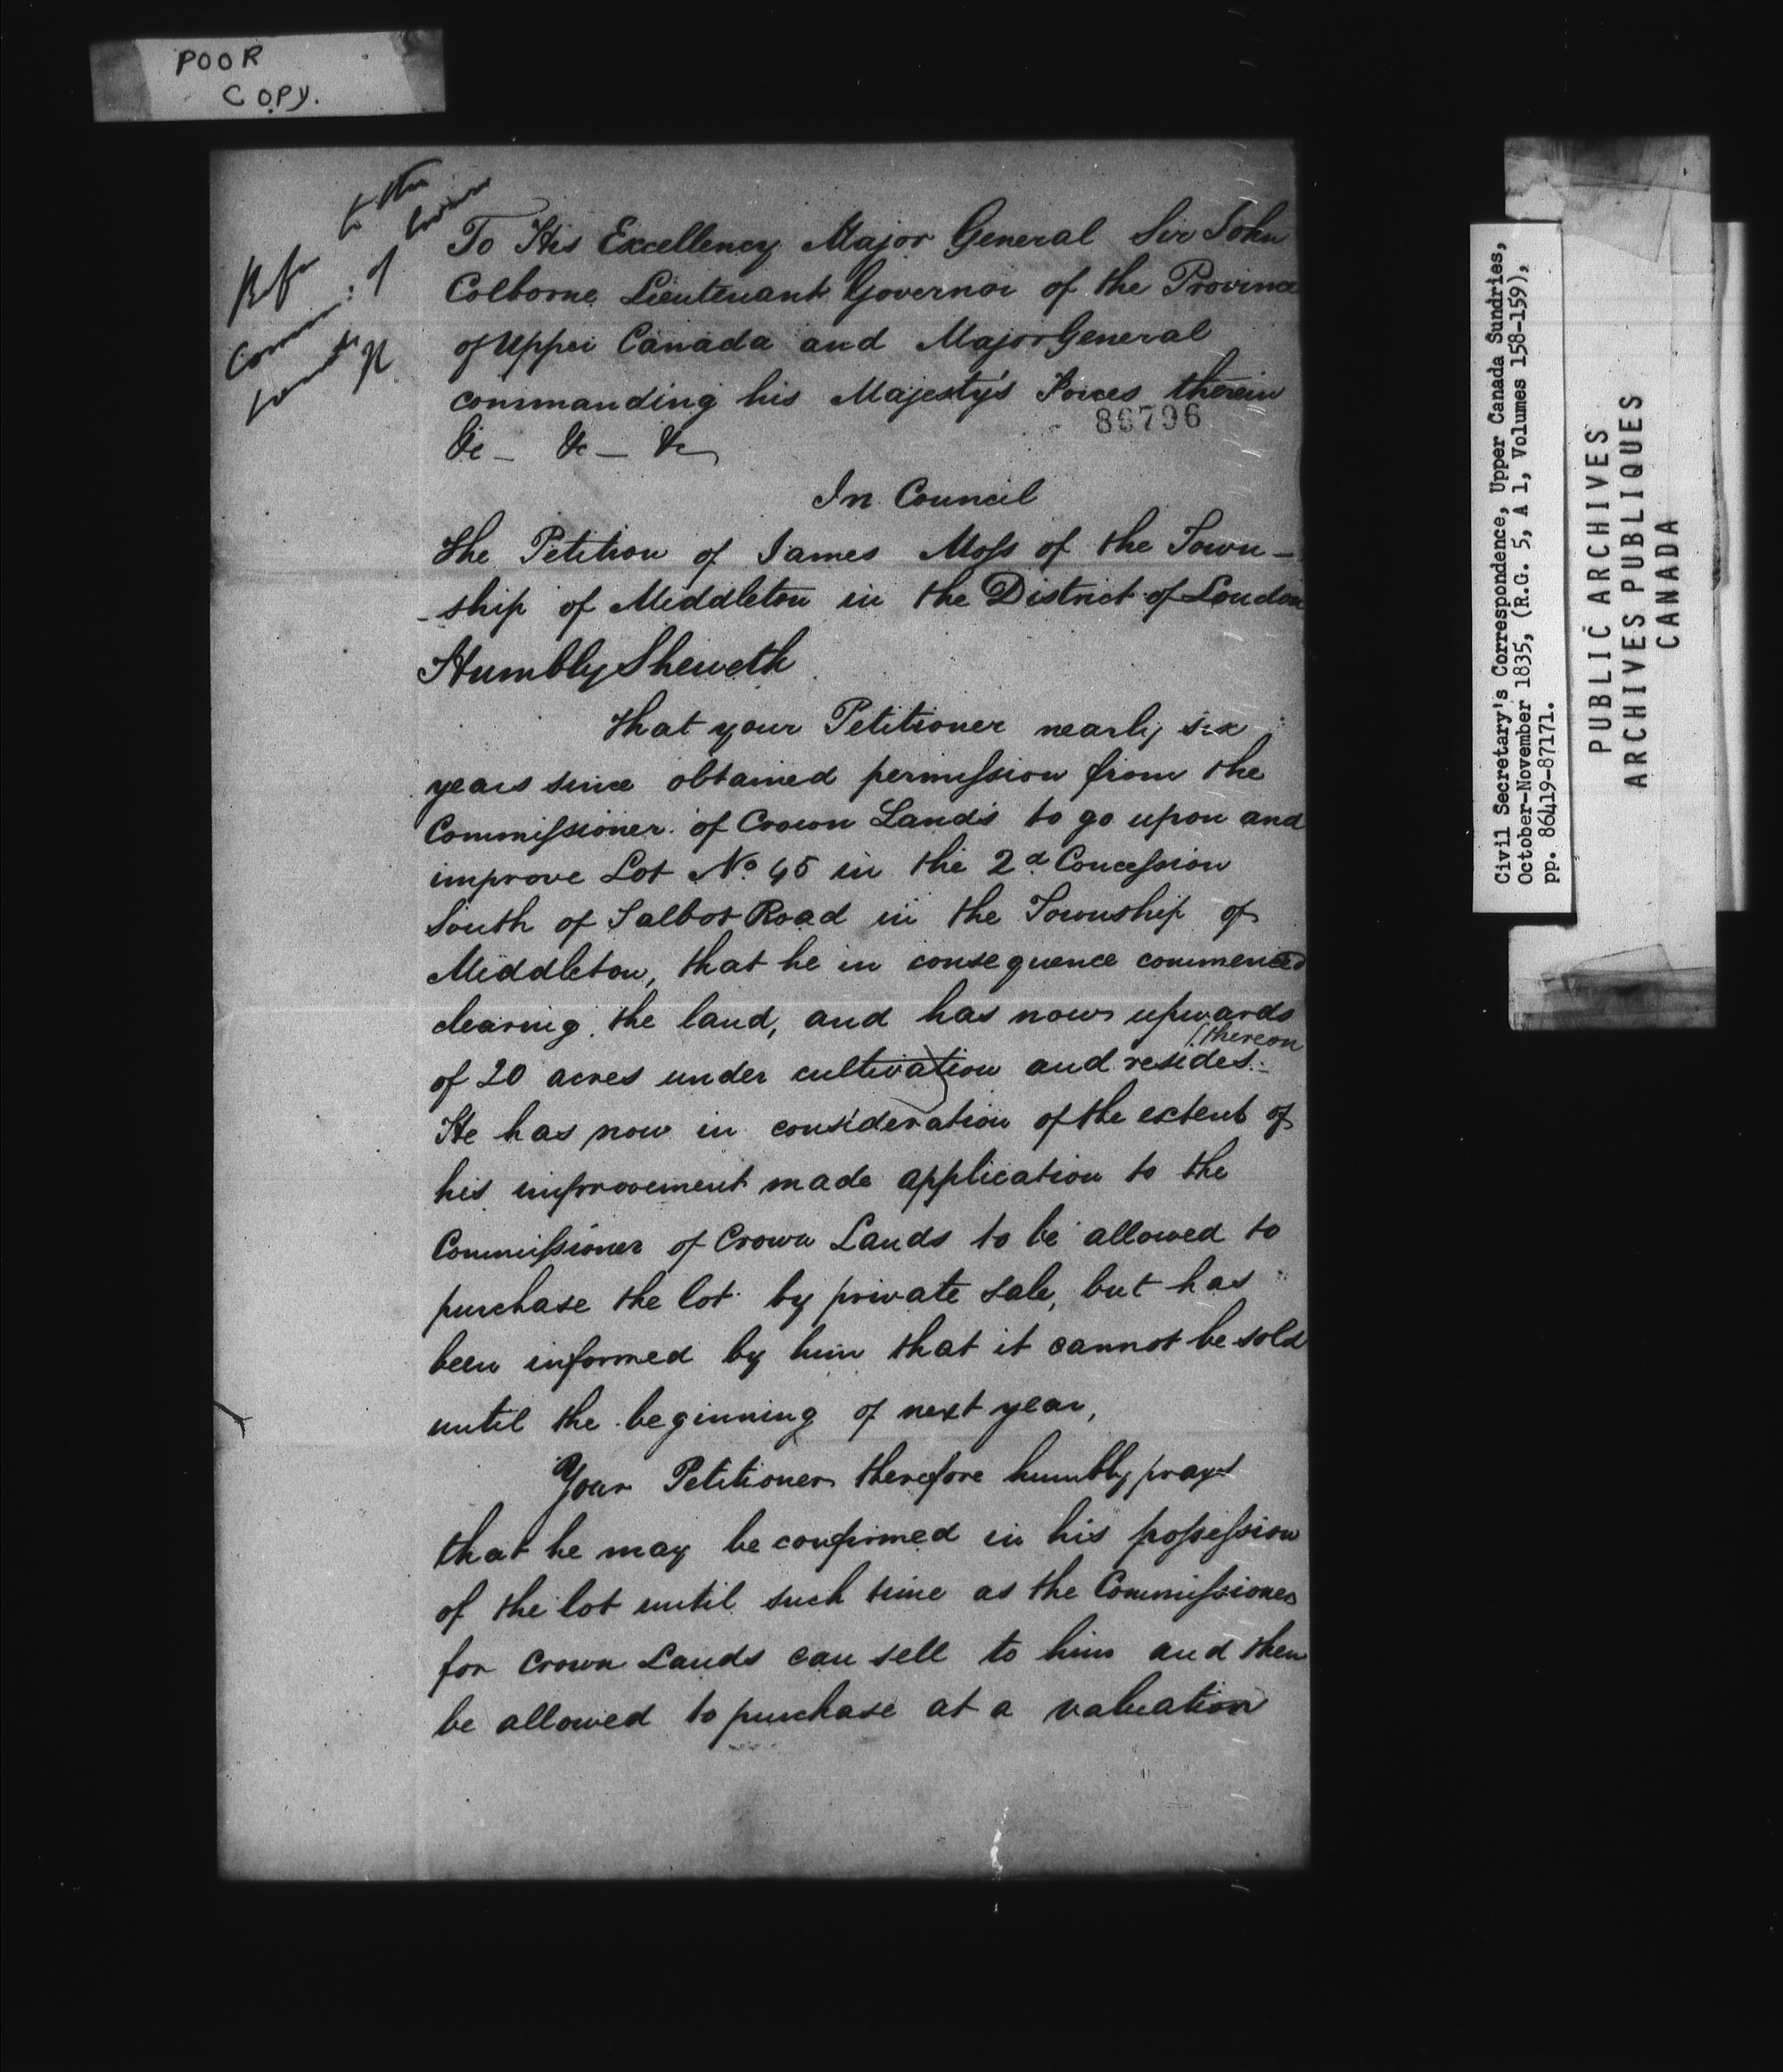 POOR
COPY.
Refer to the
Comm: of Crown
Lands
To His Excellency Major General Sir John
Colborne Lieutenant Governor of the Province
of Upper Canada and Major General
commanding his Majesty's Forces therein
86796
&c _ &c _ &c
In Council
The Petition of James Moſs of the Town-
-ship of Middleton in the District of London
Humbly Sheweth
That your Petitioner nearly six
years since obtained permiſsion from the
Commiſsioner of Crown Lands to go upon and
improve Lot No 45 in the 2d Conceſsion
South of Talbot Road in the Township of
Middleton, that he in consequence commenced
clearing the land, and has now upwards
thereon
of 20 acres under cultivation and resides.
He has now in consideration of the extent of
his improvement made application to the
Commiſsioner of Crown Lands to be allowed to
purchase the lot by private sale, but has
been informed by him that it cannot be sold
until the beginning of next year,
Your Petitioner therefore humbly prays
that he may be confirmed in his poſseſsion
of the lot until such time as the Commiſsioner
for Crown Lands can sell to him and then
be allowed to purchase at a valuation
Civil Secretary's Correspondence, Upper Canada Sundries,
October-November 1835, (R.G. 5, A 1, Volumes 158-159),
pp. 86419-87171.
PUBLIC ARCHIVES
ARCHIVES PUBLIQUES
CANADA